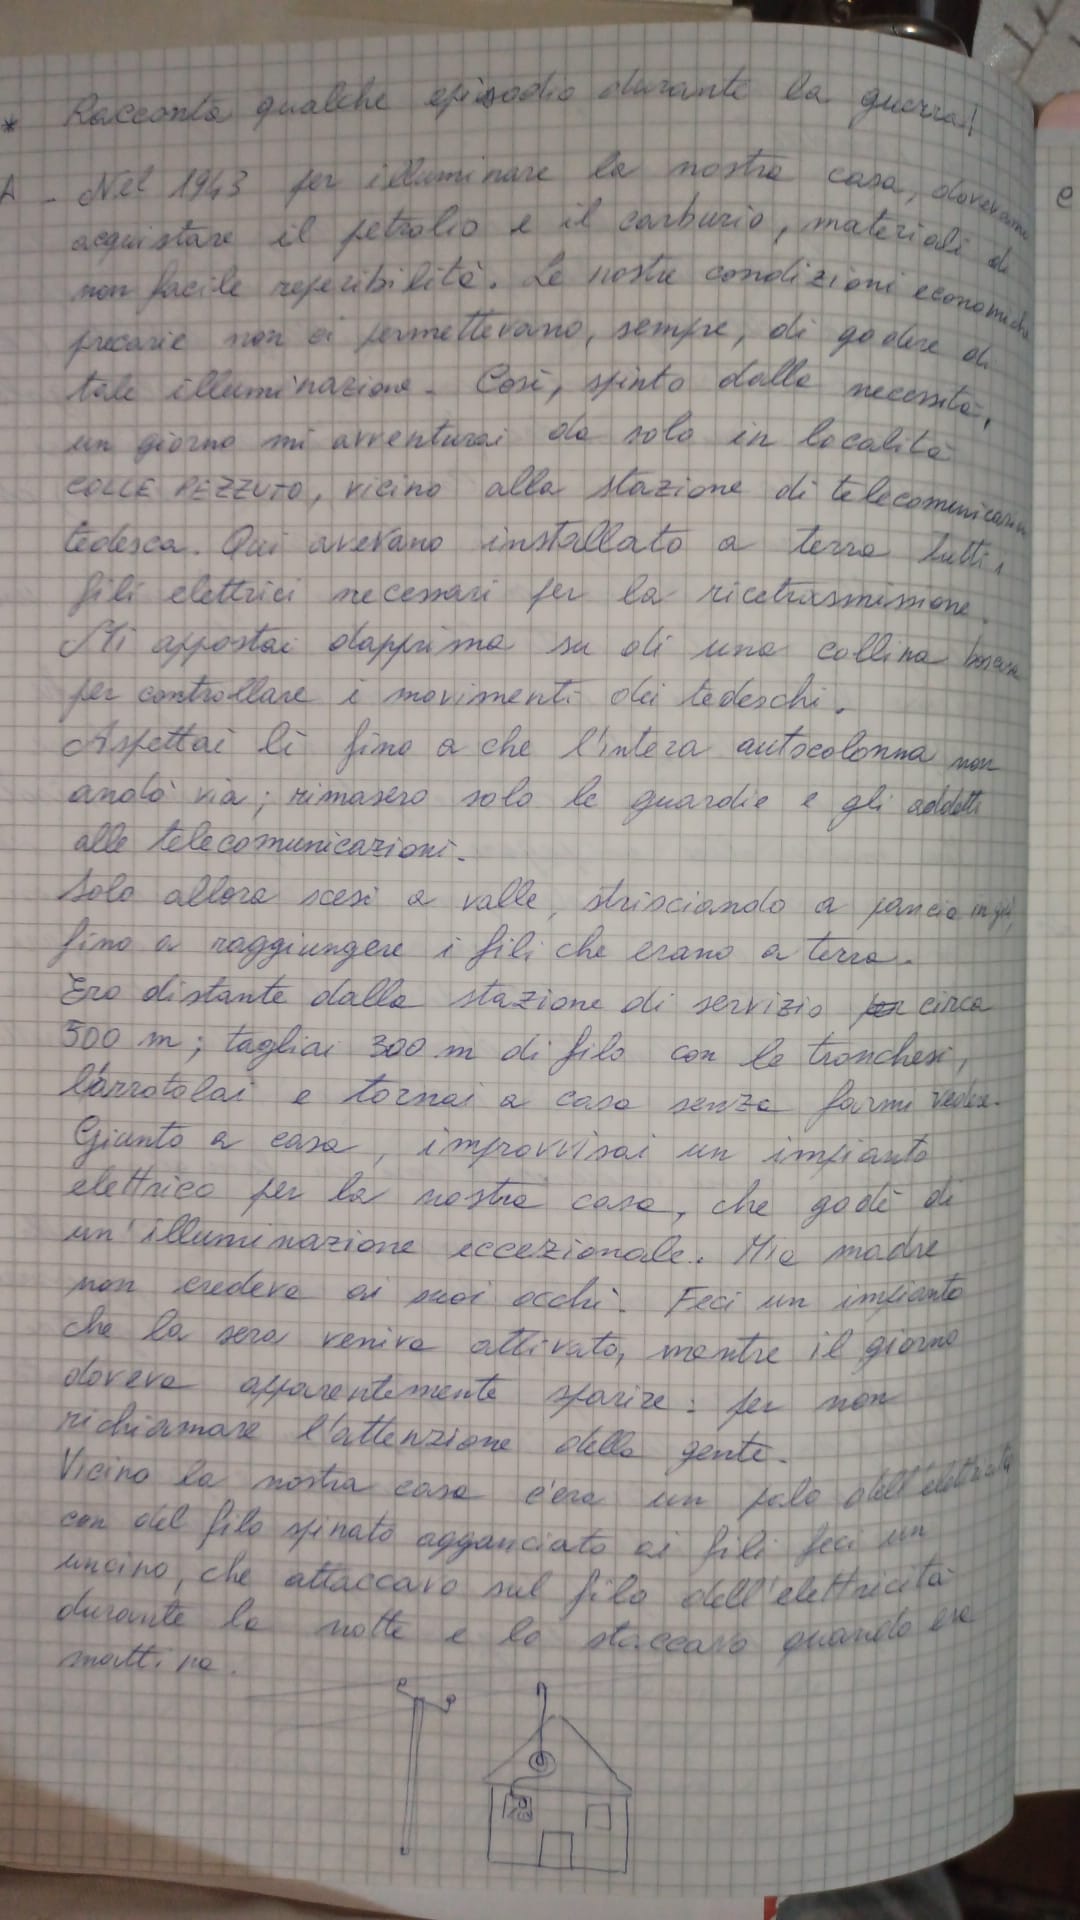 * Racconta qualche episodio durante la guerra!
A - Nel 1943 per illuminare la nostra casa, dovevamo
acquistare il petrolio e il carburio, materiali di
non facile reperibilità. Le nostre condizioni economiche
precarie non ci permettevano, sempre, di godere di
tale illuminazione. Così, spinto dalla necessità,
un giorno mi avventurai da solo in località
COLLE PEZZUTO, vicino alla stazione di telecomunicazioni
tedesca. Qui avevano installato a terra tutti i
fili elettrici necessari per la ricetrasmissione.
Mi appostai dapprima su di una collina boscosa
per controllare i movimenti dei tedeschi.
Aspettai lì fino a che l'intera autocolonna non
andò via; rimasero solo le guardie e gli addetti
alle telecomunicazioni.
Solo allora scesi a valle, strisciando a pancia in giù,
fino a raggiungere i fili che erano a terra.
Ero distante dalla stazione di servizio circa
500 m; tagliai 300 m di filo con le tronchesi,
l'arrotolai e tornai a casa senza farmi vedere.
Giunto a casa, improvvisai un impianto
elettrico per la nostra casa, che godè di
un'illuminazione eccezionale. Mia madre
non credeva ai suoi occhi. Feci un impianto
che la sera veniva attivato, mentre il giorno
doveva apparentemente sparire: per non
richiamare l'attenzione della gente.
Vicino la nostra casa c'era un palo dell'elettricità
con del filo spinato agganciato ai fili feci un
uncino, che attaccavo sul filo dell'elettricità
durante la notte e lo staccavo quando era
mattina.